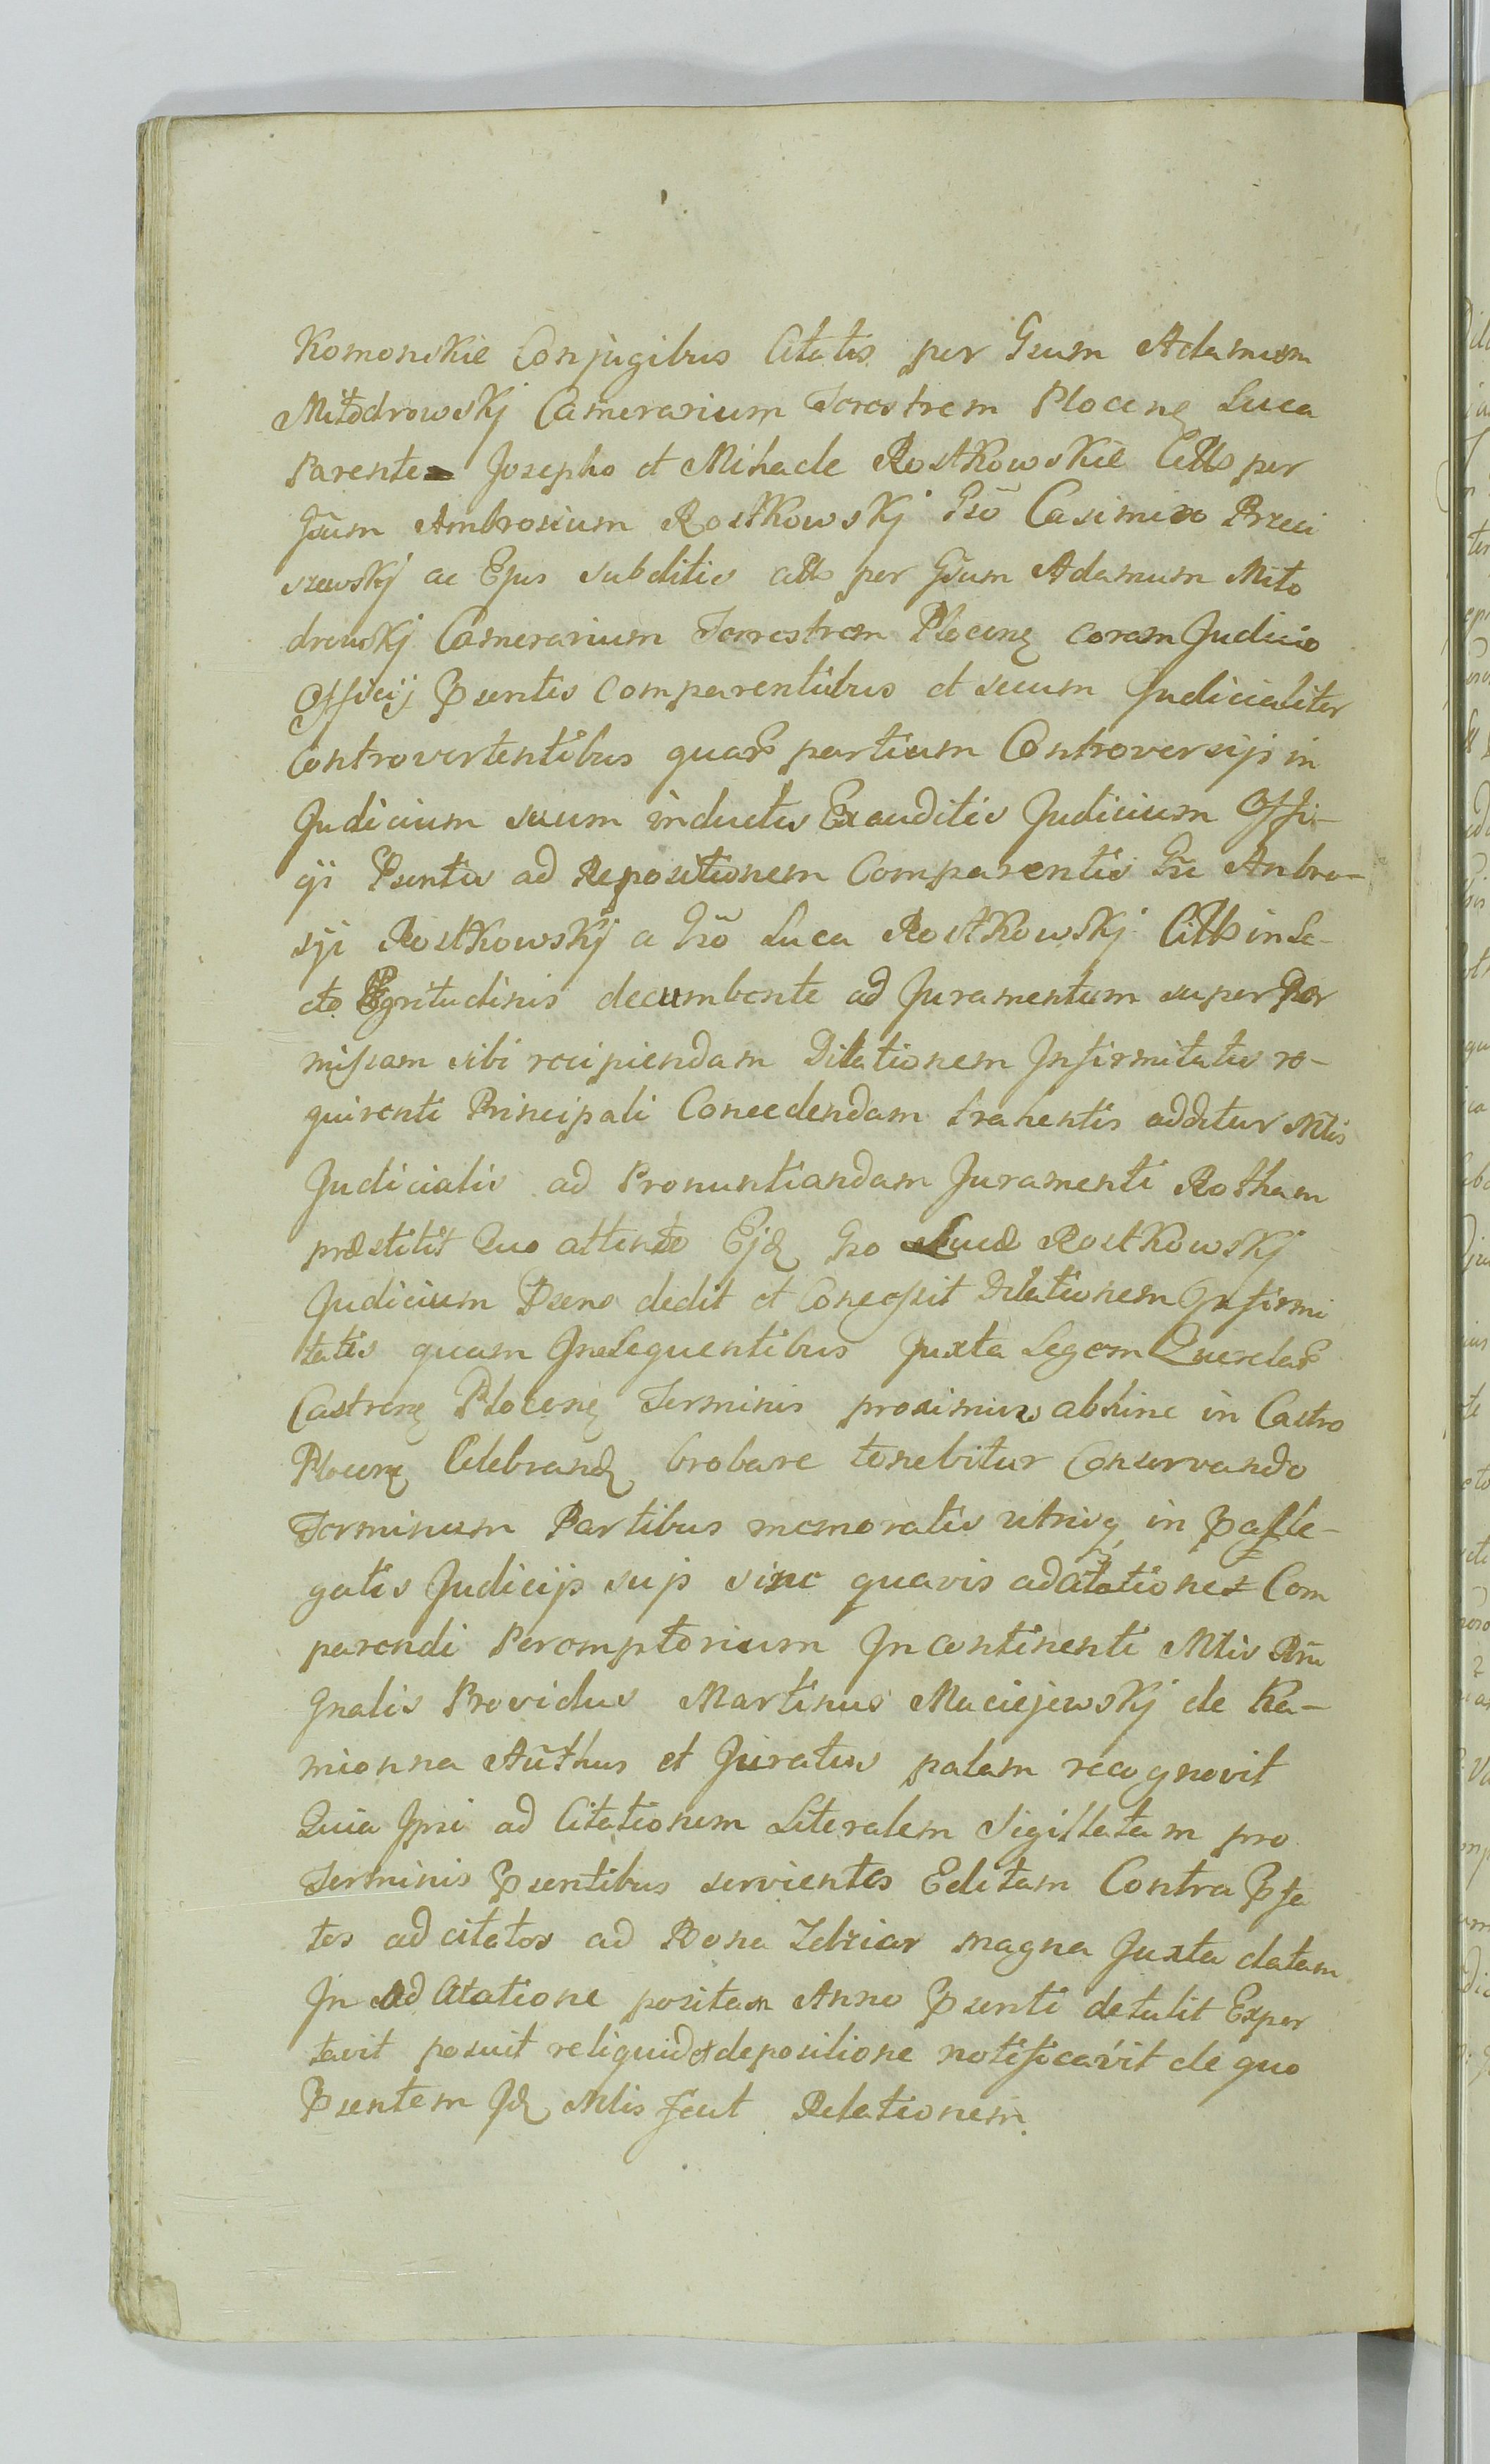 Komonskie Conjugibus Citatis per Gsum Adamum
Miłodrowskj Camerarium Terestrem Plocenȩ Luca
Parente Josepho et Mihaele Rostkowskie Citts per
Gsum Ambrosium Rostkowskj Gsō Casimiro Przeci
szewskj ac Ejus subditis atts per Gsum Adamum Miło
drowskj Camerarium Terrestrem Plocenȩ coram Judicio
Officij Psentis Comparentibus et secum Judicialiter
Controvertentibus quarū partium Controversijs in
Judicium suum inductis Exauditis Judicium Offi-
cji Psentis ad Repositionem Comparentis Gsi Ambro-
sji Rostkowskj a Gsō Luca Rostkowskj Citto in Le-
cto Egritudinis decumbente ad Juramentum super Per
missam sibi recipiendam Dilationem Infirmitatis re-
quirenti Principali Concedendam trahentis additur Mtis
Judicialis ad Pronuntiandam Juramenti Rotham
præstitit Quo attento Ejd Gso Lucæ Rostkowskj
Judicium Psens dedit et Concessit Dilationem Infirmi
tatis quam Insequentibus Juxta Legem Querelarū
Castrenȩ Plocenȩ Terminis proximis abhinc in Castro
Plocenȩ Celebrand probare tenebitur Conservando
Terminum Partibus memoratis utrisq in Psalle-
gatis Judicijs sujs sine quavis adcitatione Com
parendi Peremptorium Incontinenti Mtis Rni
Gnalis Providus Martinus Maciejewskj de Ka-
mionna Authus et Juratus palam recognovit
Quia Ipse ad Citationem Literalem Sigillatam pro
Terminis Psentibus servientes Editam Contra Psa
tos ad citatos ad Bona Zebriar magna Juxta datam
In Ad Citatione positam Anno Psenti detulit Expor
tavit posuit reliquid et depositione notificavit de quo
Psentem Id Mtis fecit Relationem.